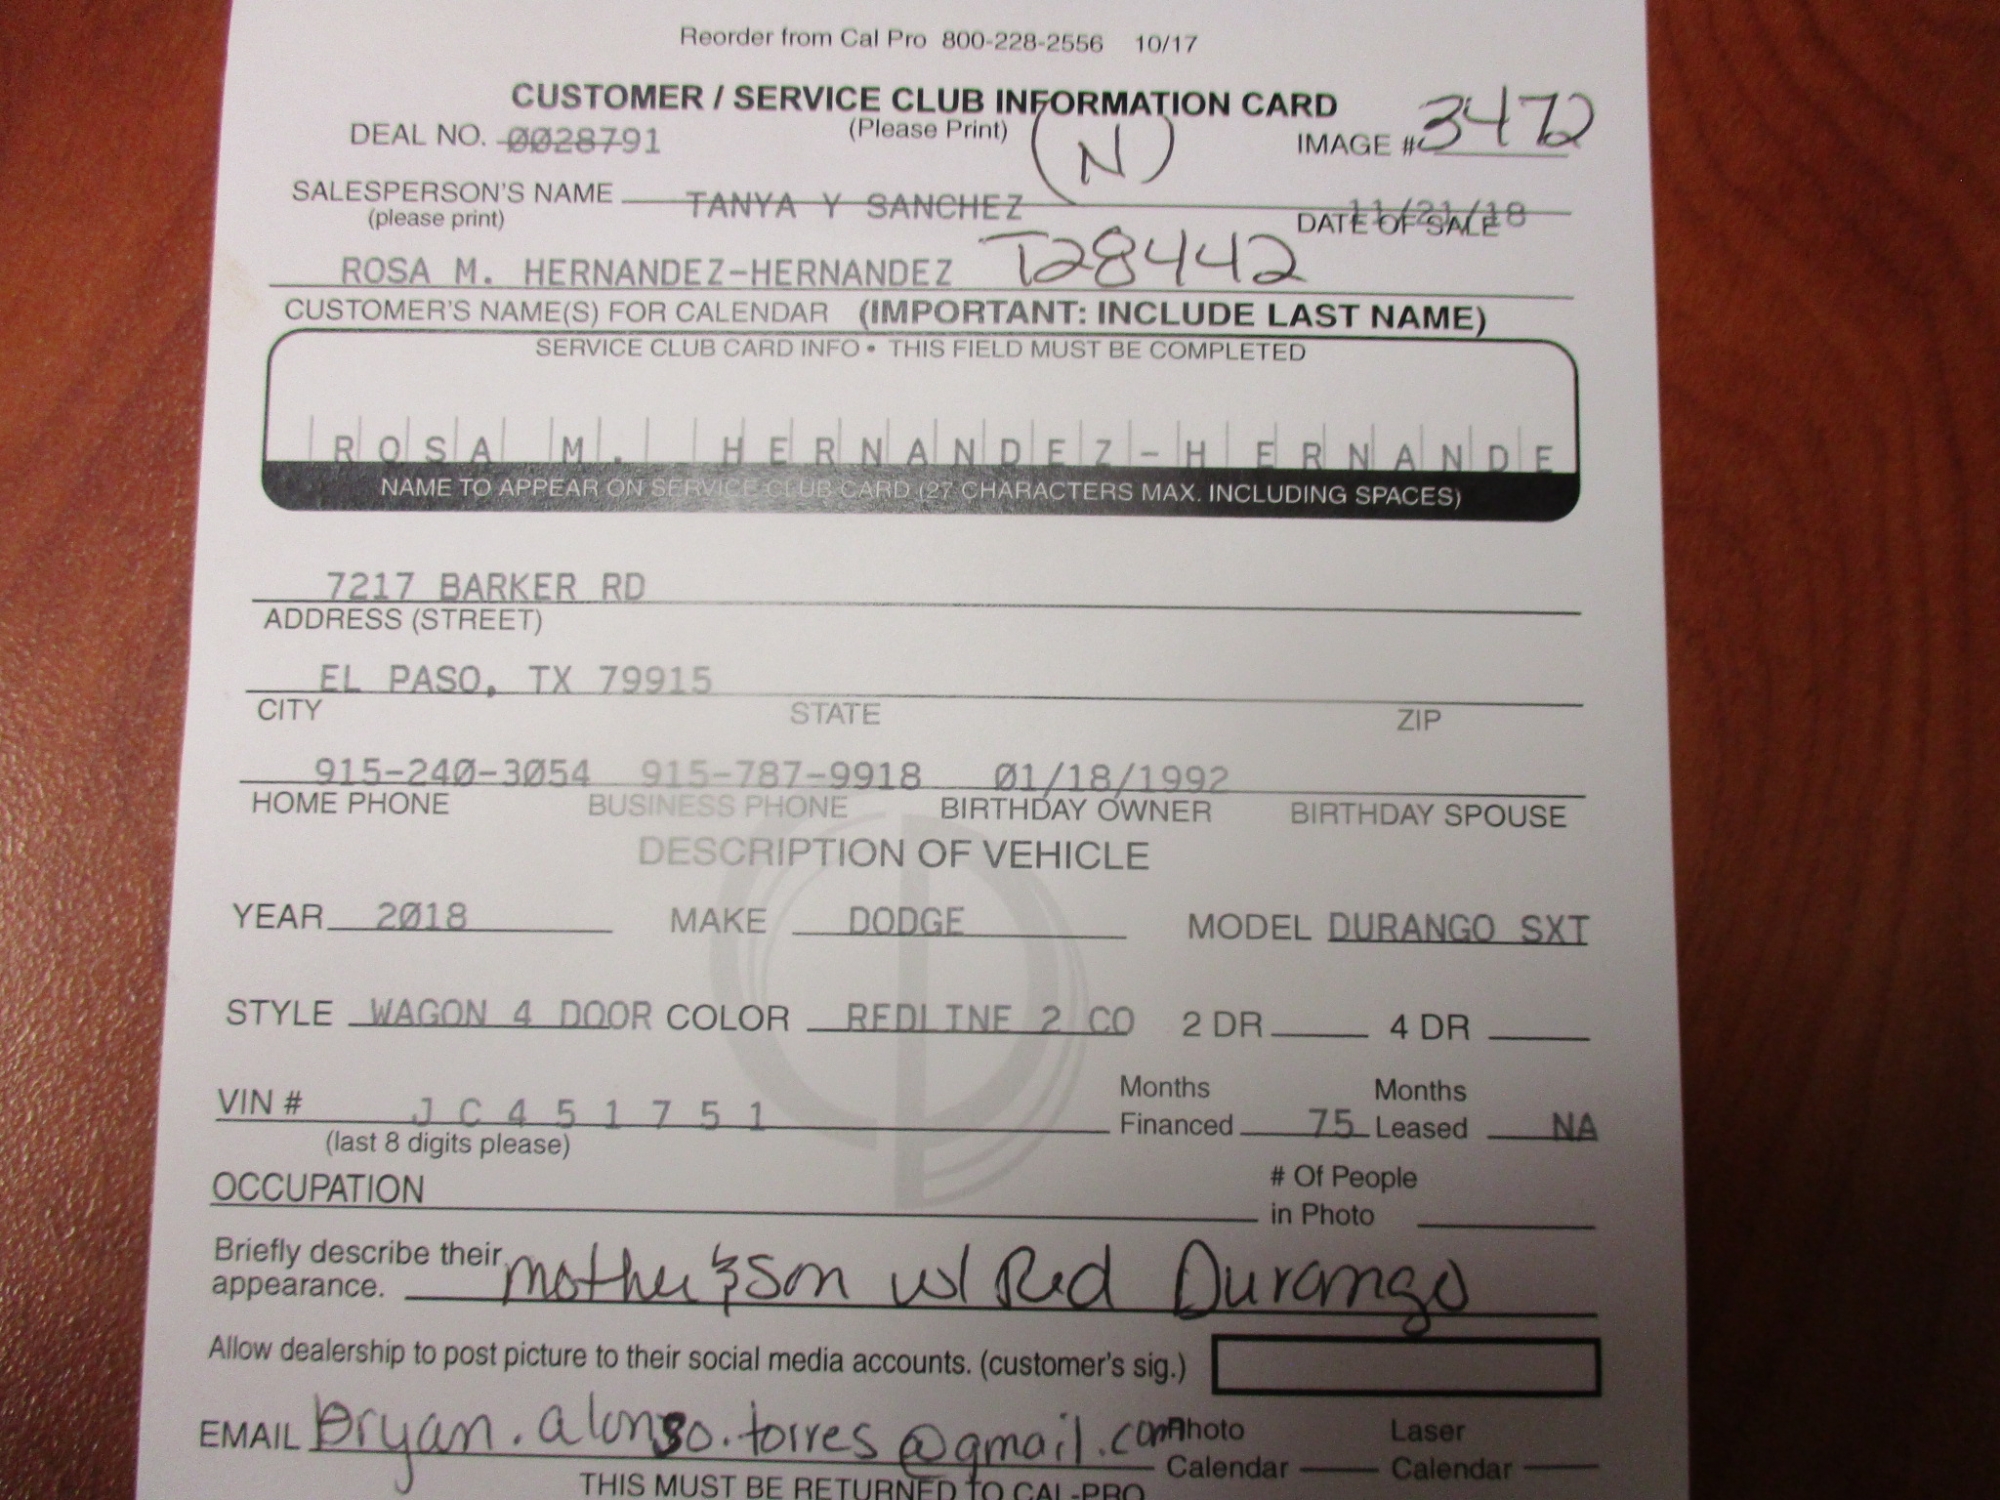 Reorder from Cal Pro 800-228-2556 10/17
CUSTOMER / SERVICE CLUB INFORMATION CARD
DEAL NO. 0028791 (Please Print) (N) IMAGE # 3472
SALESPERSON'S NAME TANYA Y SANCHEZ 11/21/18
(please print) DATE OF SALE
ROSA M. HERNANDEZ-HERNANDEZ T28442
CUSTOMER'S NAME(S) FOR CALENDAR (IMPORTANT: INCLUDE LAST NAME)
SERVICE CLUB CARD INFO • THIS FIELD MUST BE COMPLETED
ROSA M. HERNANDEZ-HERNANDE
NAME TO APPEAR ON SERVICE CLUB CARD (27 CHARACTERS MAX. INCLUDING SPACES)
7217 BARKER RD
ADDRESS (STREET)
EL PASO, TX 79915
CITY STATE ZIP
915-240-3054 915-787-9918 01/18/1992
HOME PHONE BUSINESS PHONE BIRTHDAY OWNER BIRTHDAY SPOUSE
DESCRIPTION OF VEHICLE
YEAR 2018 MAKE DODGE MODEL DURANGO SXT
STYLE WAGON 4 DOOR COLOR REDLINE 2 CO 2 DR 4 DR
Months Months
VIN # JC451751 Financed 75 Leased NA
(last 8 digits please)
OCCUPATION # Of People
in Photo
Briefly describe their
appearance. mother & son w/ Red Durango
Allow dealership to post picture to their social media accounts. (customer's sig.)
EMAIL Bryan.alonso.torres@gmail.com Photo Laser
Calendar Calendar
THIS MUST BE RETURNED TO CAL-PRO